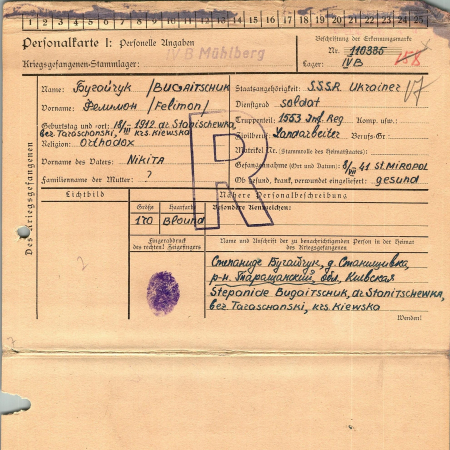 1 2 3 4 5 6 7 8 9 10 11 12 13 14 15 16 17 18 19 20 21 22 23 24 25
Personalkarte I: Personelle Angaben
Kriegsgefangenen-Stammlager:
IV B Mühlberg
Beschriftung der Erkennungsmarke
Nr. 110385
Lager: IV B
158
Des Kriegsgefangenen
Name: Бугайчук /BUGAITSCHUK
Vorname: Фелимон /Felimon/
Geburtstag und -ort: 1912, dr. Stanischewka,
bez Taraschanski, krs. Kiewska
Religion: Orthodox
Vorname des Vaters: Nikita
Familienname der Mutter: ?
Staatsangehörigkeit: S.S.S.R Ukrainer
Dienstgrad: soldat
Truppenteil: 1553 Inf. Reg Komp. usw.:
Zivilberuf: Landarbeiter Berufs-Gr.
Matrikel Nr. (Stammrolle des Heimatstaates):
Gefangennahme (Ort und Datum): 8/VII 41 St. MIROPOL
Ob gesund, krank, verwundet eingeliefert: gesund
R
Lichtbild
Nähere Personalbeschreibung
Größe
Haarfarbe
Besondere Kennzeichen:
170
Blound
Fingerabdruck
des rechten! Zeigefingers
Name und Anschrift der zu benachrichtigenden Person in der Heimat
des Kriegsgefangenen
Степаниде Бугайчук, д. Станишивка,
р-н. Таращанский, обл. Киевская
Stepanide Bugaitschuk, dr. Stanitschewka,
bez Taraschanski, krs. Kiewska
Wenden!